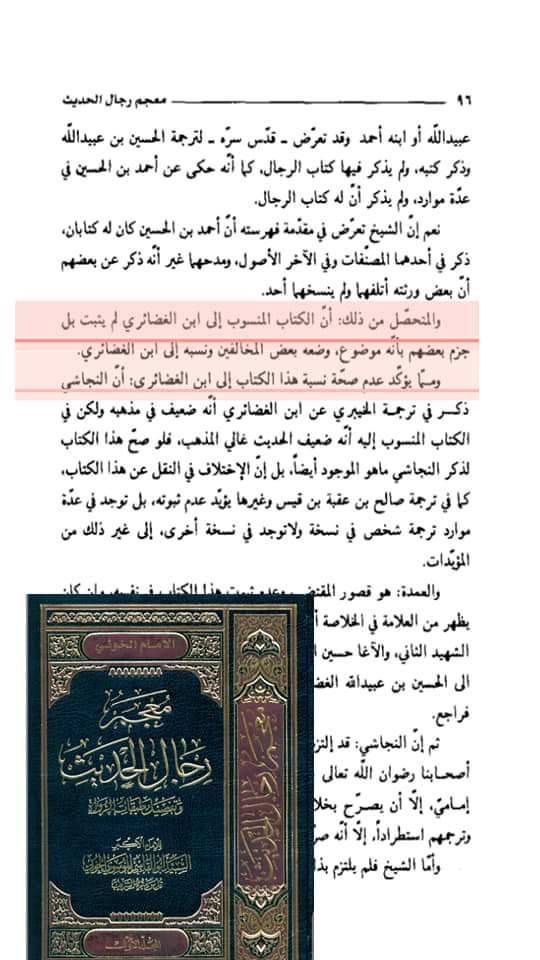 ٩٦ معجم رجال الحديث
عبيدالله أو ابنه أحمد وقد تعرّض ـ قدّس سرّه ـ لترجمة الحسين بن عبيدالله
وذكر كتبه، ولم يذكر فيها كتاب الرجال، كما أنّه حكى عن أحمد بن الحسين في
عدّة موارد، ولم يذكر أنّ له كتاب الرجال.
نعم إنّ الشيخ تعرّض في مقدّمة فهرسته أنّ أحمد بن الحسين كان له كتابان،
ذكر في أحدهما المصنّفات وفي الآخر الأصول، ومدحهما غير أنّه ذكر عن بعضهم
أنّ بعض ورثته أتلفهما ولم ينسخهما أحد.
والمتحصّل من ذلك: أنّ الكتاب المنسوب إلى ابن الغضائري لم يثبت بل
جزم بعضهم بأنّه موضوع، وضعه بعض المخالفين ونسبه إلى ابن الغضائري.
ومـمّا يؤكّد عدم صحّة نسبة هذا الكتاب إلى ابن الغضائري: أنّ النجاشي
ذكـر في ترجمـة الخيبري عن ابن الغضائري أنّه ضعيف في مذهبه ولكن في
الكتاب المنسوب إليه أنّه ضعيف الحديث غالي المذهب، فلو صحّ هذا الكتاب
لذكر النجاشي ماهو الموجود أيضاً، بل إنّ الإختلاف في النقل عن هذا الكتاب،
كما في ترجمة صالح بن عقبة بن قيس وغيرها يؤيّد عدم ثبوته، بل توجد في عدّة
موارد ترجمة شخص في نسخة ولاتوجد في نسخة أخرى، إلى غير ذلك من
المؤيّدات.
والعمدة: هو قصور المقتضي وعدم ثبوت هذا الكتاب في نفسه، وإن كان
يظهر من العلامة في الخلاصة
الشهيد الثاني، والآغا حسين
الى الحسين بن عبيدالله
فراجع.
ثم إنّ النجاشي: قد
أصحـابنا رضوان الله تعالى
إمامـيّ، إلّا أن يصـرّح
وترجمهم استطراداً، إلّا أنّه
وأمّا الشيخ فلم يلتزم
الإمام الخوئي
معجم
رجال الحديث
وتفصيل طبقات الرواة
معجم رجال الحديث